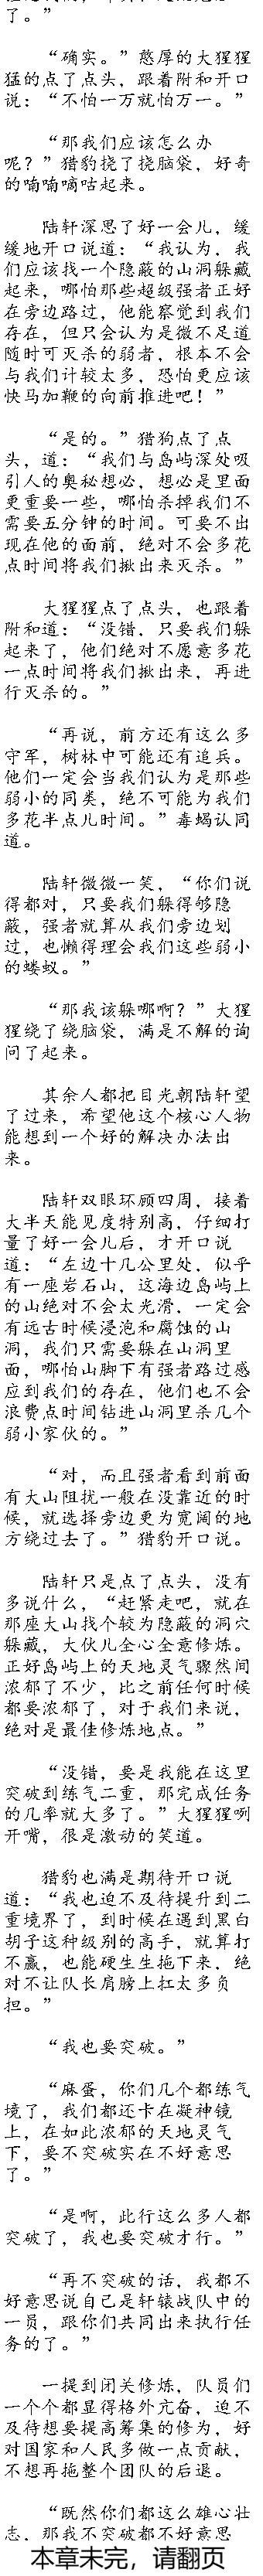 了。”
“确实。”憨厚的大猩猩
猛的点了点头，跟着附和开口
说：“不怕一万就怕万一。”
“那我们应该怎么办
呢？”猎豹挠了挠脑袋，好奇
的喃喃嘀咕起来。
陆轩深思了好一会儿，缓
缓地开口说道：“我认为，我
们应该找一个隐蔽的山洞躲藏
起来，哪怕那些超级强者正好
在旁边路过，他能察觉到我们
存在，但只会认为是微不足道
随时可灭杀的弱者，根本不会
与我们计较太多，恐怕更应该
快马加鞭的向前推进吧！”
“是的。”猎狗点了点
头，道：“我们与岛屿深处吸
引人的奥秘想必，想必是里面
更重要一些，哪怕杀掉我们不
需要五分钟的时间。可要不出
现在他的面前，绝对不会多花
点时间将我们揪出来灭杀。”
大猩猩点了点头，也跟着
附和道：“没错，只要我们躲
起来了，他们绝对不愿意多花
一点时间将我们揪出来，再进
行灭杀的。”
“再说，前方还有这么多
守军，树林中可能还有追兵。
他们一定会当我们认为是那些
弱小的同类，绝不可能为我们
多花半点儿时间。”毒蝎认同
道。
陆轩微微一笑，“你们说
得都对，只要我们躲得够隐
蔽，强者就算从我们旁边划
过，也懒得理会我们这些弱小
的蝼蚁。”
“那我该躲哪啊？”大猩
猩绕了绕脑袋，满是不解的询
问了起来。
其余人都把目光朝陆轩望
了过来，希望他这个核心人物
能想到一个好的解决办法出
来。
陆轩双眼环顾四周，接着
大半天能见度特别高，仔细打
量了好一会儿后，才开口说
道：“左边十几公里处，似乎
有一座岩石山，这海边岛屿上
的山绝对不会太光滑，一定会
有远古时候浸泡和腐蚀的山
洞，我们只需要躲在山洞里
面，哪怕山脚下有强者路过感
应到我们的存在，他们也不会
浪费点时间钻进山洞里杀几个
弱小家伙的。”
“对，而且强者看到前面
有大山阻扰一般在没靠近的时
候，就选择旁边更为宽阔的地
方绕过去了。”猎豹开口说。
陆轩只是点了点头，没有
多说什么，“赶紧走吧，就在
那座大山找个较为隐蔽的洞穴
躲藏，大伙儿全心全意修炼。
正好岛屿上的天地灵气骤然间
浓郁了不少，比之前任何时候
都要浓郁了，对于我们来说，
绝对是最佳修炼地点。”
“没错，要是我能在这里
突破到练气二重，那完成任务
的几率就大多了。”大猩猩咧
开嘴，很是激动的笑道。
猎豹也满是期待开口说
道：“我也迫不及待提升到二
重境界了，到时候在遇到黑白
胡子这种级别的高手，就算打
不赢，也能硬生生拖下来，绝
对不让队长肩膀上扛太多负
担。”
“我也要突破。”
“麻蛋，你们几个都练气
境了，我们都还卡在凝神镜
上，在如此浓郁的天地灵气
下，要不突破实在不好意思
了。”
“是啊，此行这么多人都
突破了，我也要突破才行。”
“再不突破的话，我都不
好意思说自己是轩辕战队中的
一员，跟你们共同出来执行任
务的了。”
一提到闭关修炼，队员们
一个个都显得格外亢奋，迫不
及待想要提高筹集的修为，好
对国家和人民多做一点贡献，
不想再拖整个团队的后退。
“既然你们都这么雄心壮
志，那我不突破都不好意思
本章未完，请翻页